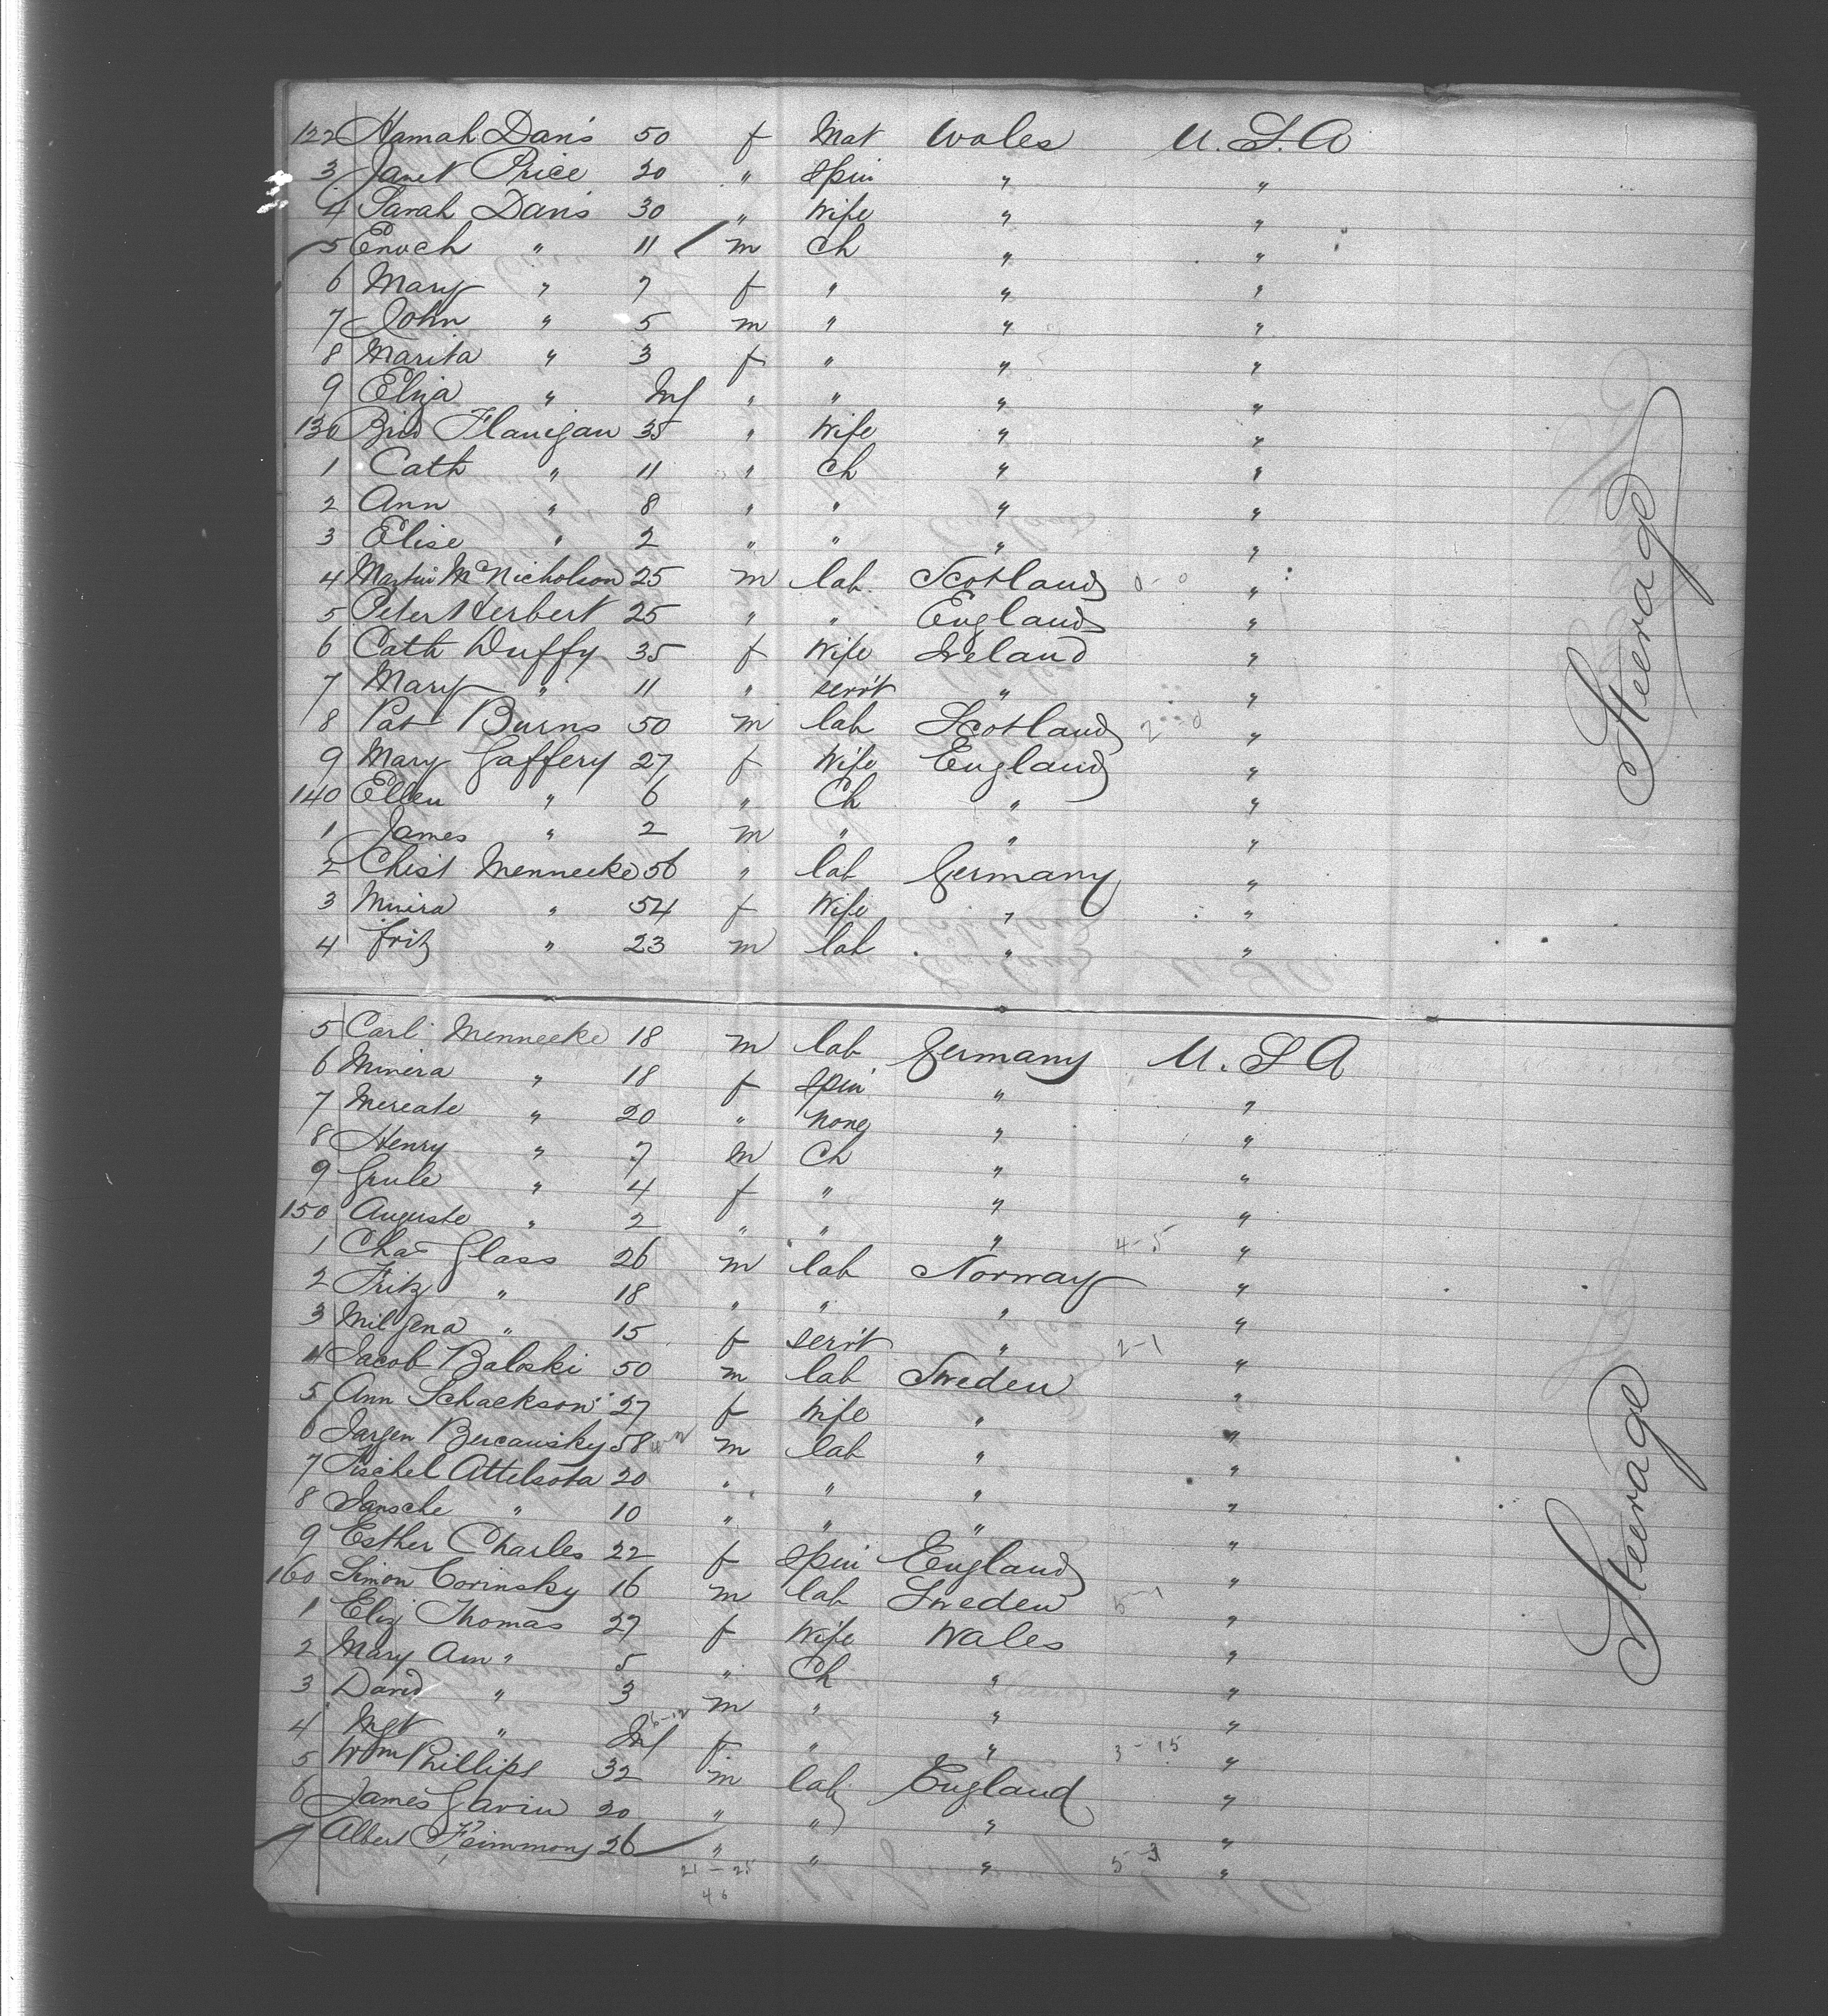 122 Hannah Davis 50 f Mat Wales U.S.A
3 Janet Price 20 " Spin " "
4 Sarah Davis 30 " Wife " "
5 Enoch " 11 m Ch " "
6 Mary " 7 f " " "
7 John " 5 m " " "
8 Marita " 3 f " " "
9 Eliza " Inf " " " "
130 Brid Flanigan 35 " Wife " "
1 Cath " 11 " Ch " "
2 Ann " 8 " " " "
3 Elise " 2 " " " "
4 Martin McNicholson 25 m lab Scotland "
5 Peter Herbert 25 " " England "
6 Cath Duffy 35 f Wife Ireland "
7 Mary " 11 " servt " "
8 Pat Burns 50 m lab Scotland "
9 Mary Gaffery 27 f Wife England "
140 Ellen " 6 " Ch " "
1 James " 2 m " " "
2 Chist Mennecke 56 " lab Germany "
3 Minira " 54 f Wife " "
4 Fritz " 23 m lab " "
Steerage
5 Carl Mennecke 18 m lab Germany U.S.A
6 Minera " 18 f Spin " "
7 Mereate " 20 " none " "
8 Henry " 7 m Ch " "
9 Grule " 4 f " " "
150 Auguste " 2 " " " 4-5 "
1 Chas Glass 26 m lab Norway "
2 Fritz " 18 " " " "
3 Milgena " 15 f servt " 2-1 "
4 Jacob Baloski 50 m lab Sweden "
5 Ann Schackson 27 f Wife " "
6 Jargen Bercausky 58 m lab " "
7 Fischel Attelsota 20 " " " "
8 Jansche " 10 " " " "
9 Esther Charles 22 f Spin England "
160 Simon Corinsky 16 m lab Sweden 5-1 "
1 Eliz Thomas 27 f Wife Wales "
2 Mary Ann " 5 " Ch " "
3 David " 3 m " " "
4 Mgt " Inf f " " 3-15 "
5 Wm Phillips 32 m lab England "
6 James Gavin 20 " " " "
7 Albert Fsimmons 26 " " " 5-3 "
21-25
46
Steerage